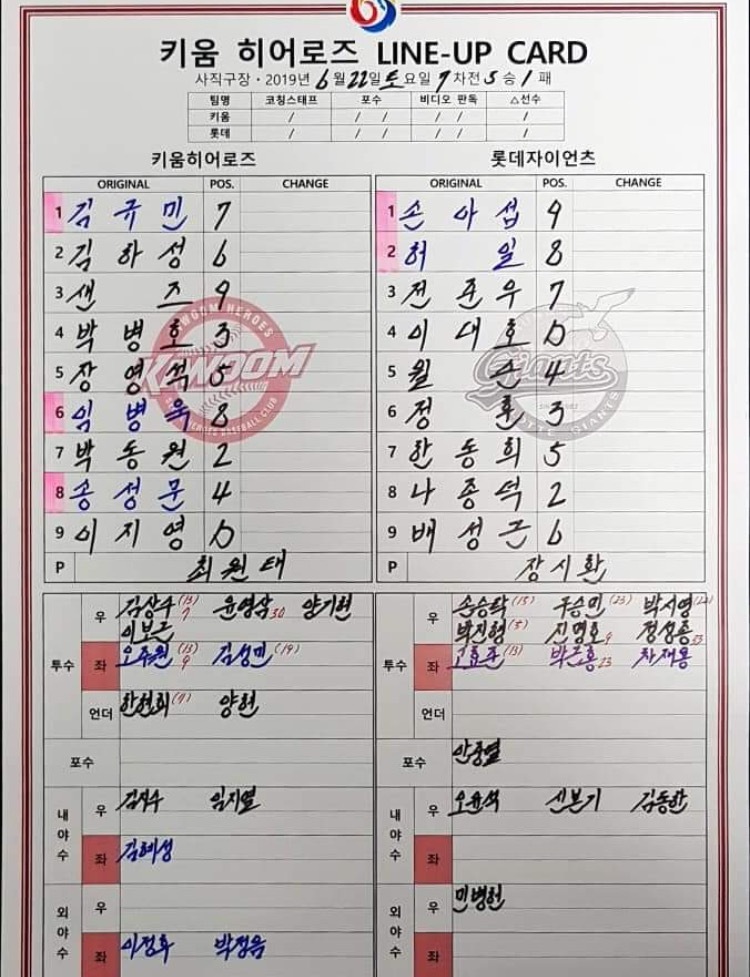 키움 히어로즈 LINE-UP CARD
사직구장 · 2019년 6월 22일 토요일 7차전 5승 1패
팀명 코칭스태프 포수 비디오 판독 △선수
키움 / / / / / /
롯데 / / / / / /
키움히어로즈
ORIGINAL POS. CHANGE
1 김규민 7
2 김하성 6
3 샌즈 9
4 박병호 3
5 장영석 5
6 임병욱 8
7 박동원 2
8 송성문 4
9 이지영 D
P 최원태
롯데자이언츠
ORIGINAL POS. CHANGE
1 손아섭 9
2 허일 8
3 전준우 7
4 이대호 D
5 윌슨 4
6 정훈 3
7 한동희 5
8 나종덕 2
9 배성근 6
P 장시환
KIWOOM HEROES
KIWOOM
HEROES BASEBALL CLUB
Giants
LOTTE GIANTS
투수
우 김상수(13) 7 윤영삼 30 양기현
이보근
좌 오주원(13) 9 김성민(19)
언더 한현희(7) 양현
포수
내야수
우 김지수 임지열
좌 김혜성
외야수
우
좌 이정후 박정음
투수
우 손승락(15) 구승민(23) 박시영
박진형(5) 진명호 9 정성종 33
좌 고효준(13) 박근홍 23 차재용
언더
포수 안중열
내야수
우 오윤석 신본기 김동한
좌
외야수
우 민병헌
좌